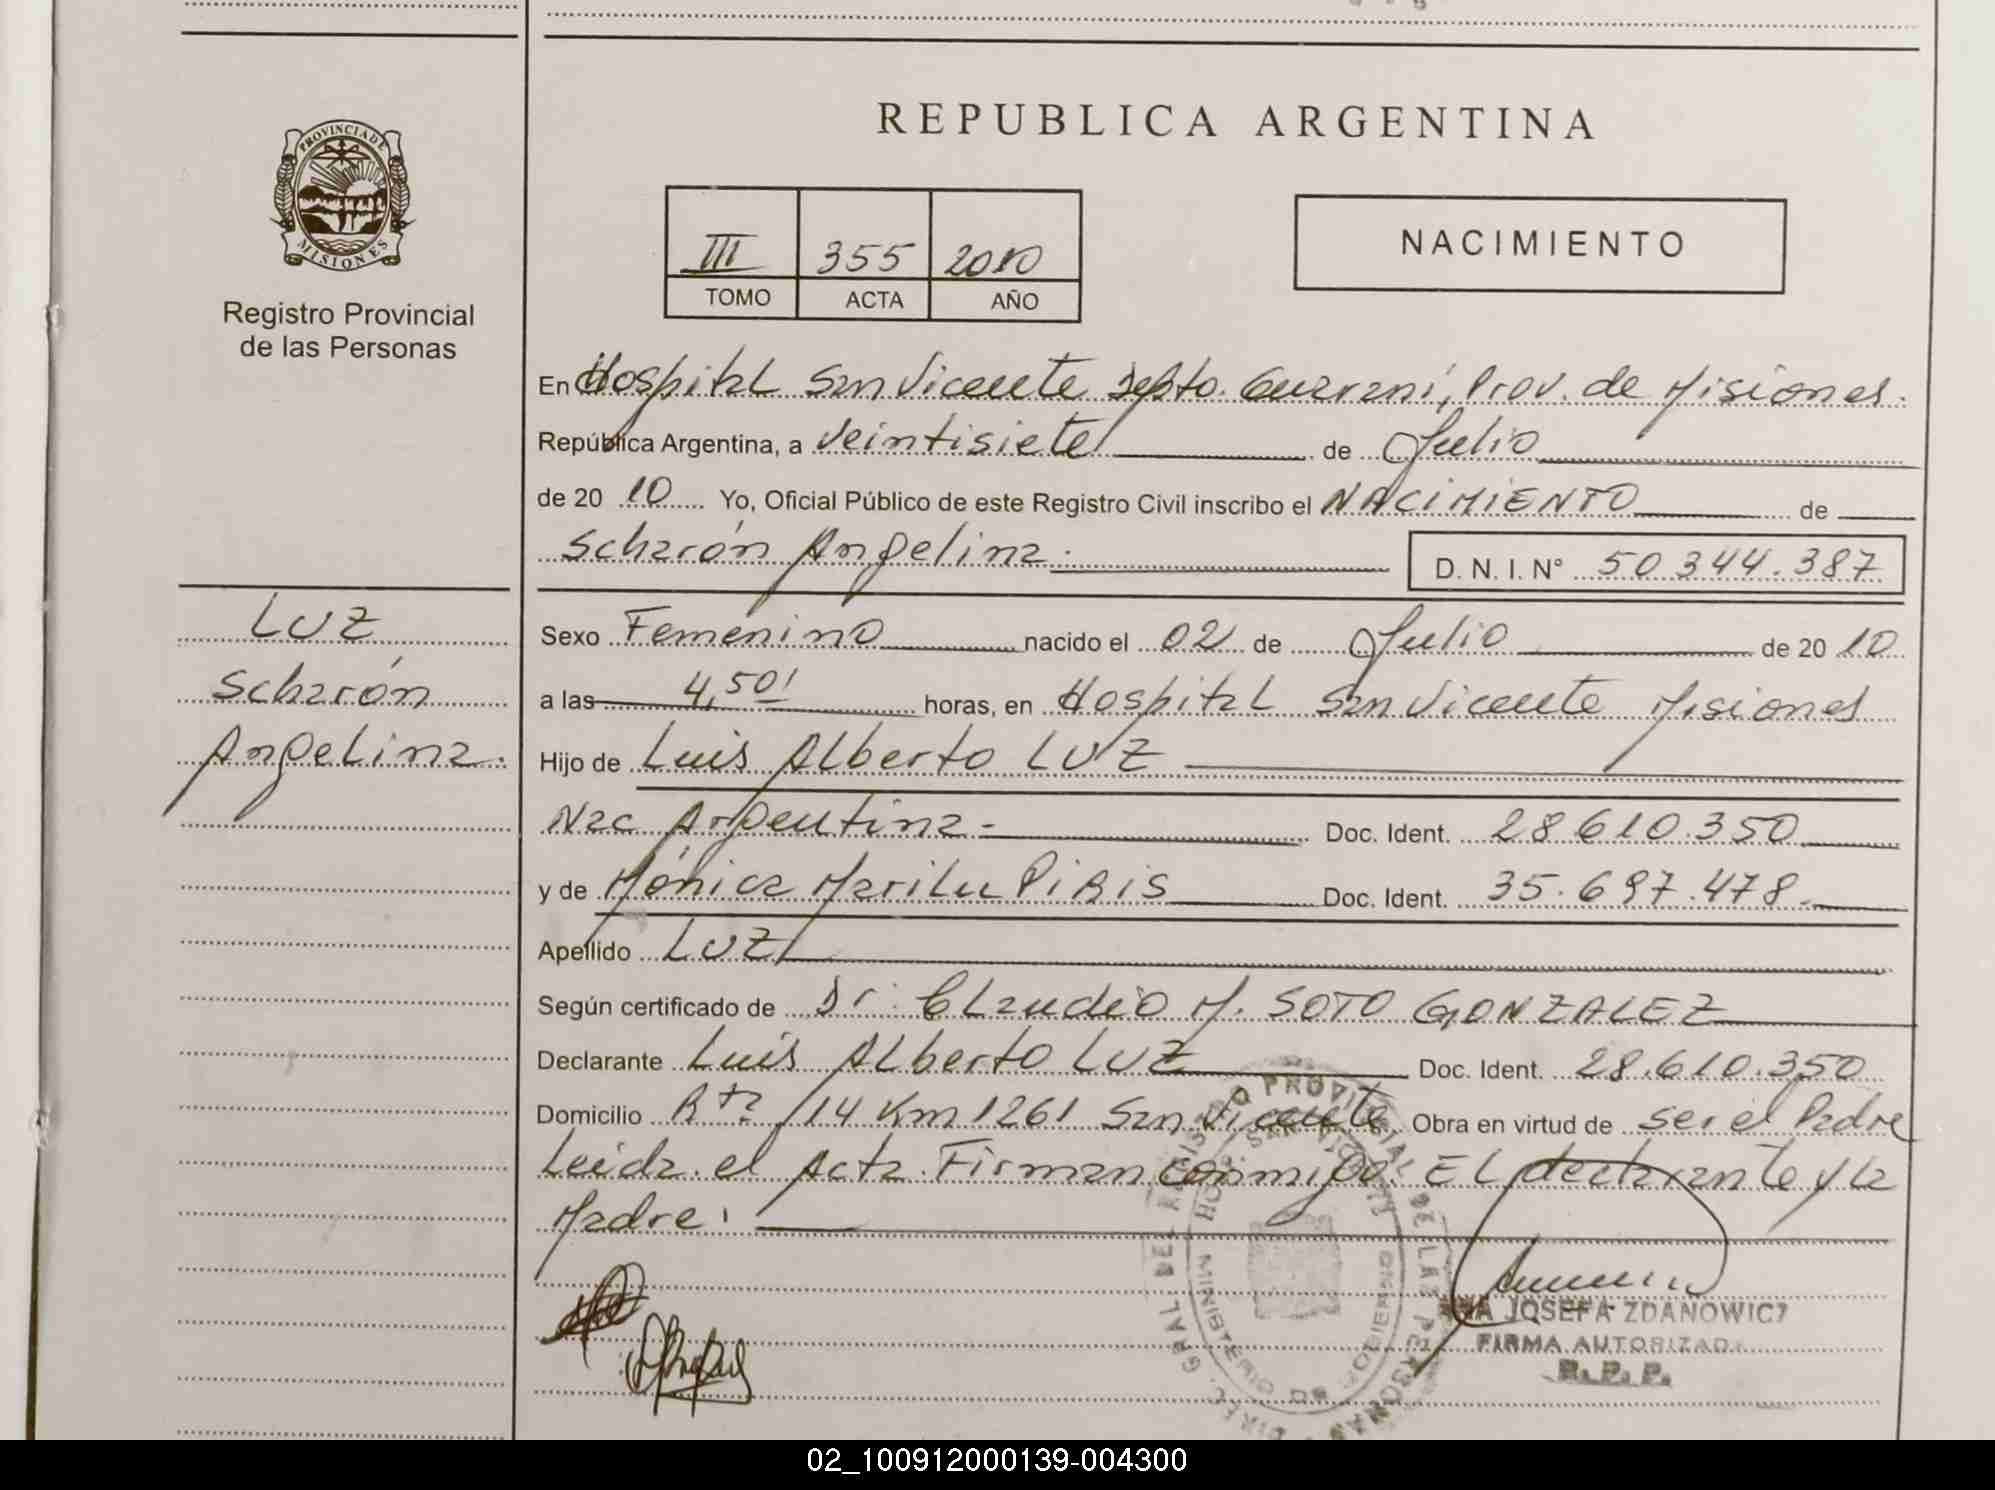 REPUBLICA ARGENTINA
PROVINCIA DE
MISIONES
Registro Provincial
de las Personas
III 355 2010
TOMO ACTA AÑO
NACIMIENTO
En Hospital San Vicente Depto. Guaraní, Prov. de Misiones.
República Argentina, a Veintisiete de Julio
de 20 10 Yo, Oficial Público de este Registro Civil inscribo el NACIMIENTO de
Scharón Angelina.
D. N. I. N° 50 344.387
LUZ
Scharón
Angelina.
Sexo Femenino nacido el 02 de Julio de 20 10
a las 4,50' horas, en Hospital San Vicente Misiones
Hijo de Luis Alberto LUZ
Nac Argentina- Doc. Ident. 28.610.350
y de Mónica Marilu PIRIS Doc. Ident. 35.697.478.
Apellido LUZ
Según certificado de Dr: Claudio M. SOTO GONZALEZ
Declarante Luis Alberto LUZ Doc. Ident. 28.610.350
Domicilio Rta 14 Km 1261 San Vicente Obra en virtud de ser el Padre
Leida el Acta Firman conmigo: El declarante y la
Madre:
DIREC. GRAL DEL REGISTRO PROVINCIAL DE LAS PERSONAS
HOSP. SAN VICENTE
MINISTERIO DE GOBIERNO
JOSEFA ZDANOWICZ
FIRMA AUTORIZADA
R.P.P.
02_100912000139-004300